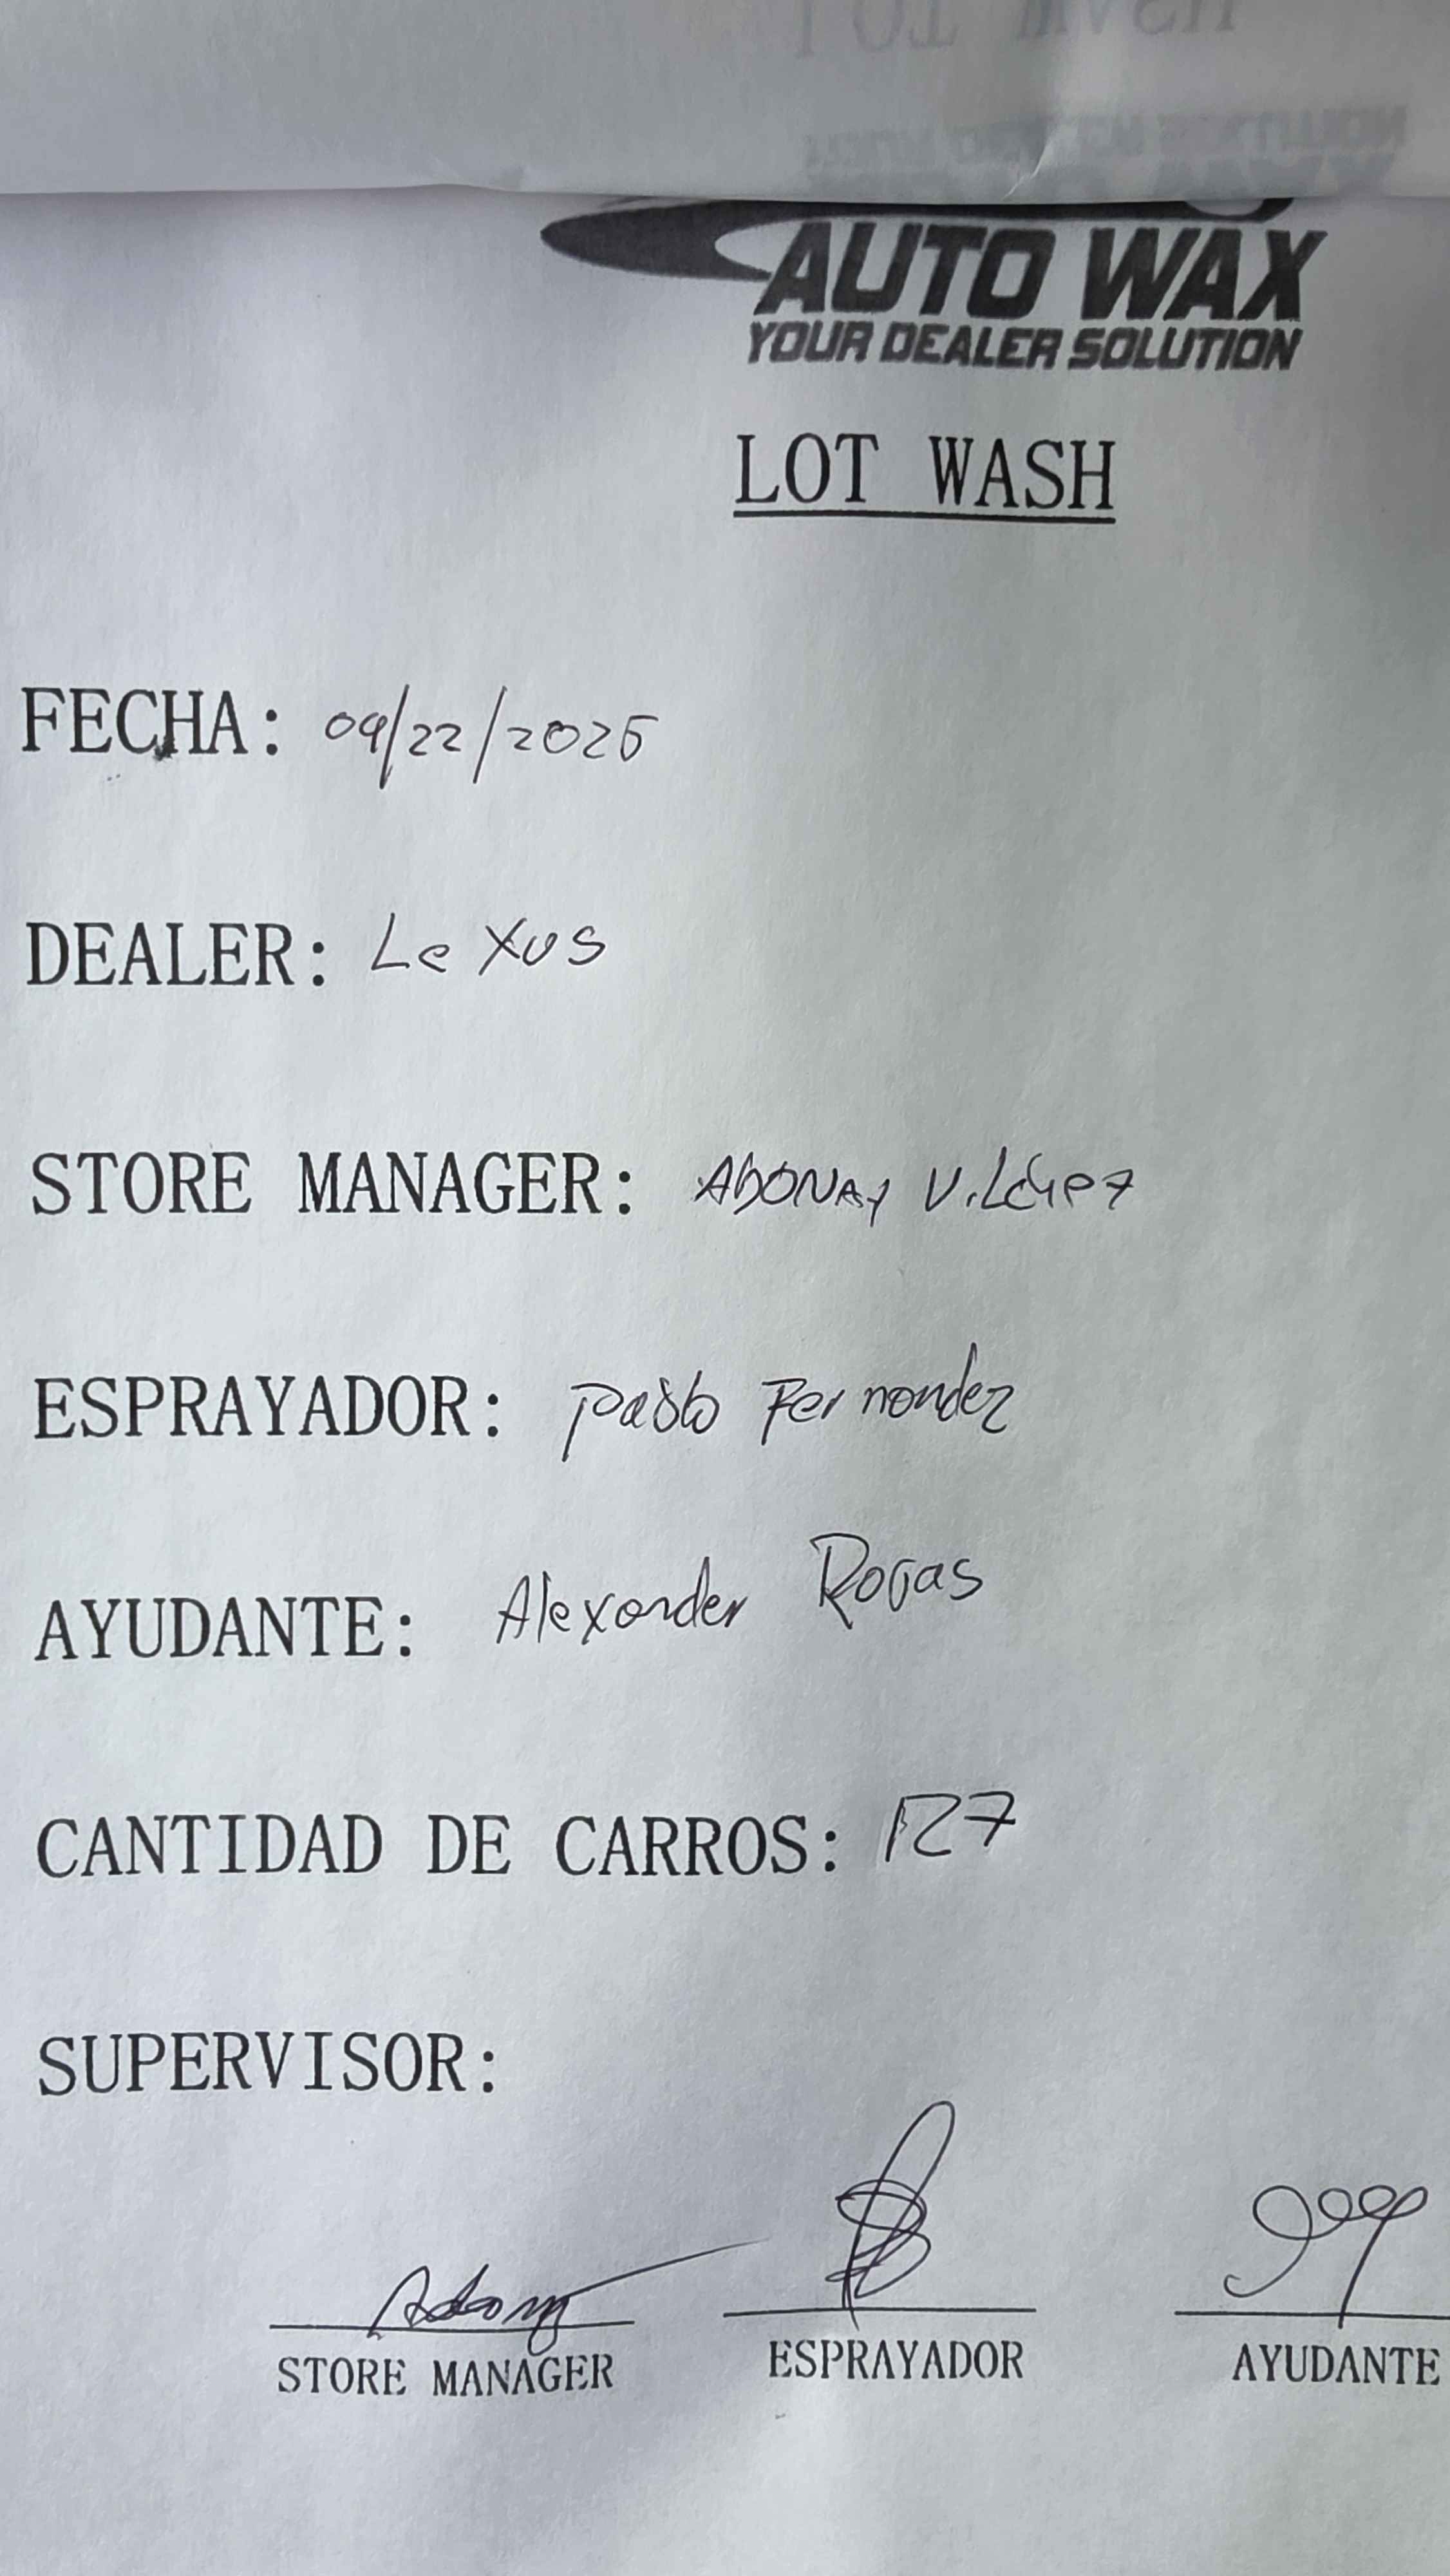 AUTO WAX
YOUR DEALER SOLUTION
LOT WASH
FECHA: 09/22/2025
DEALER: LeXus
STORE MANAGER: ADONAY VILCHEZ
ESPRAYADOR: pablo Fernandez
AYUDANTE: Alexander Rojas
CANTIDAD DE CARROS: 127
SUPERVISOR:
STORE MANAGER ESPRAYADOR AYUDANTE